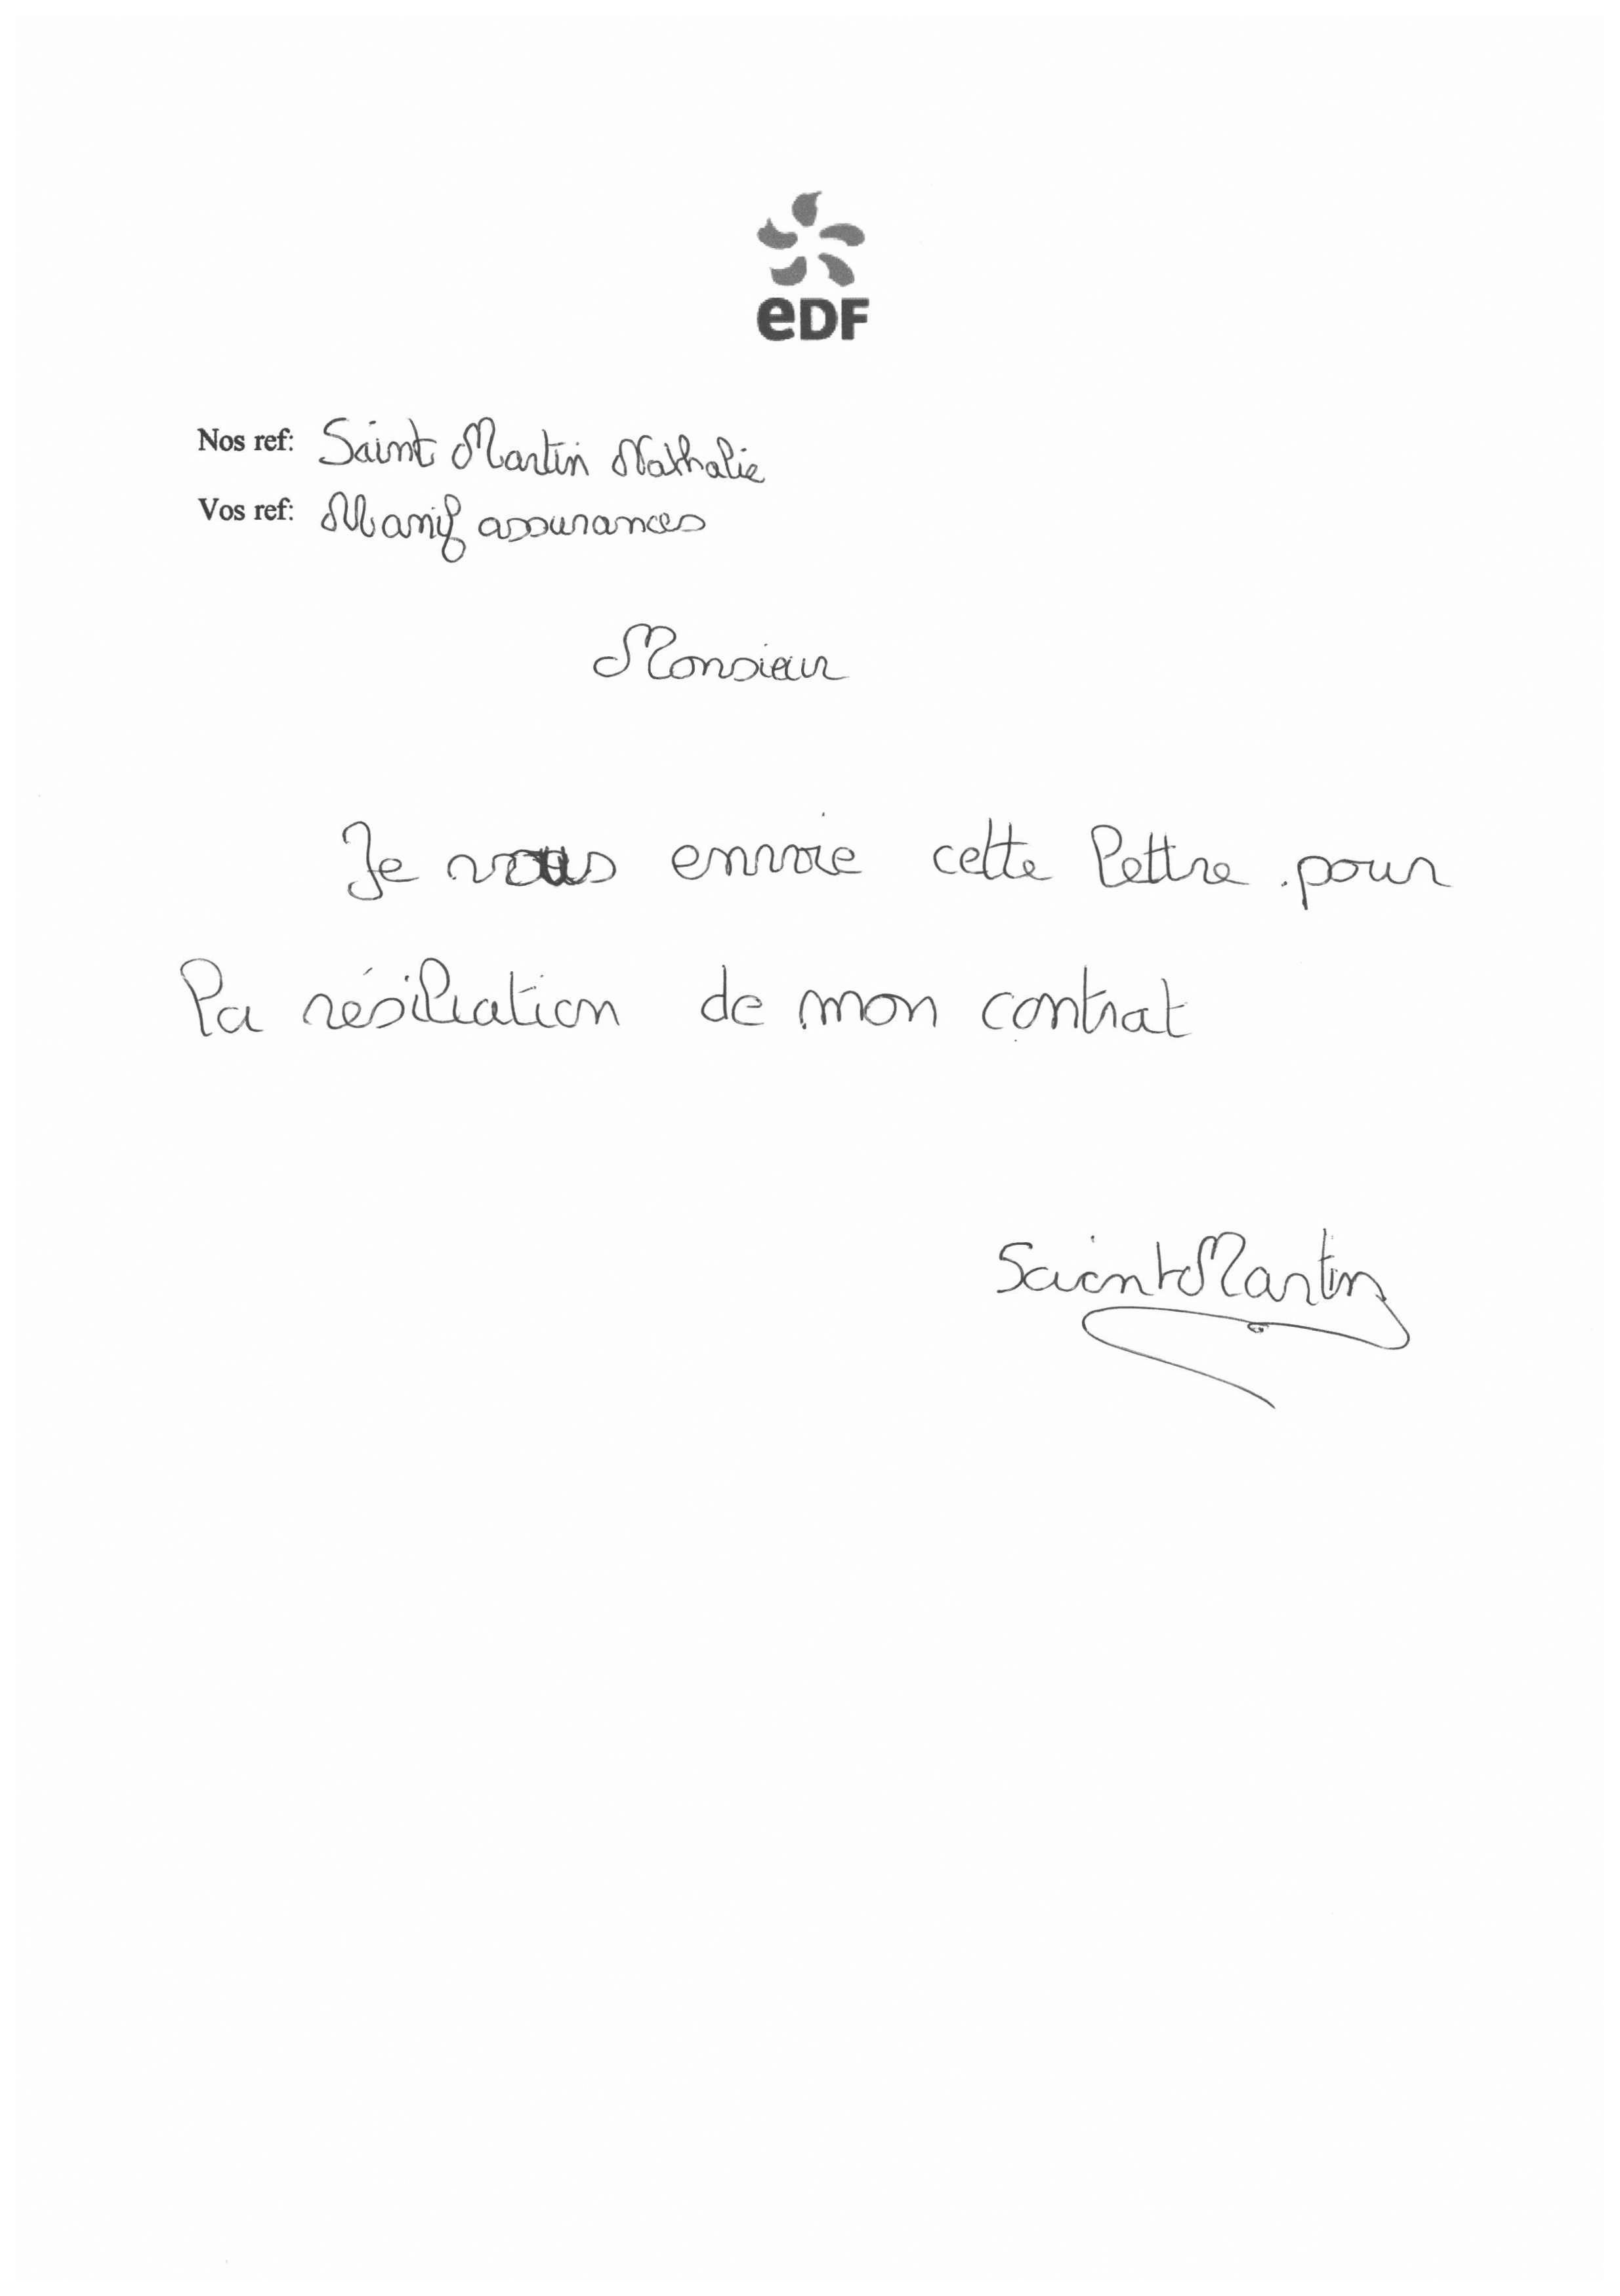 eDF
Nos ref: Saint Martin Nathalie
Vos ref: Manif assurances
Monsieur
Je vous envoie cette lettre pour
la résiliation de mon contrat
Saint Martin